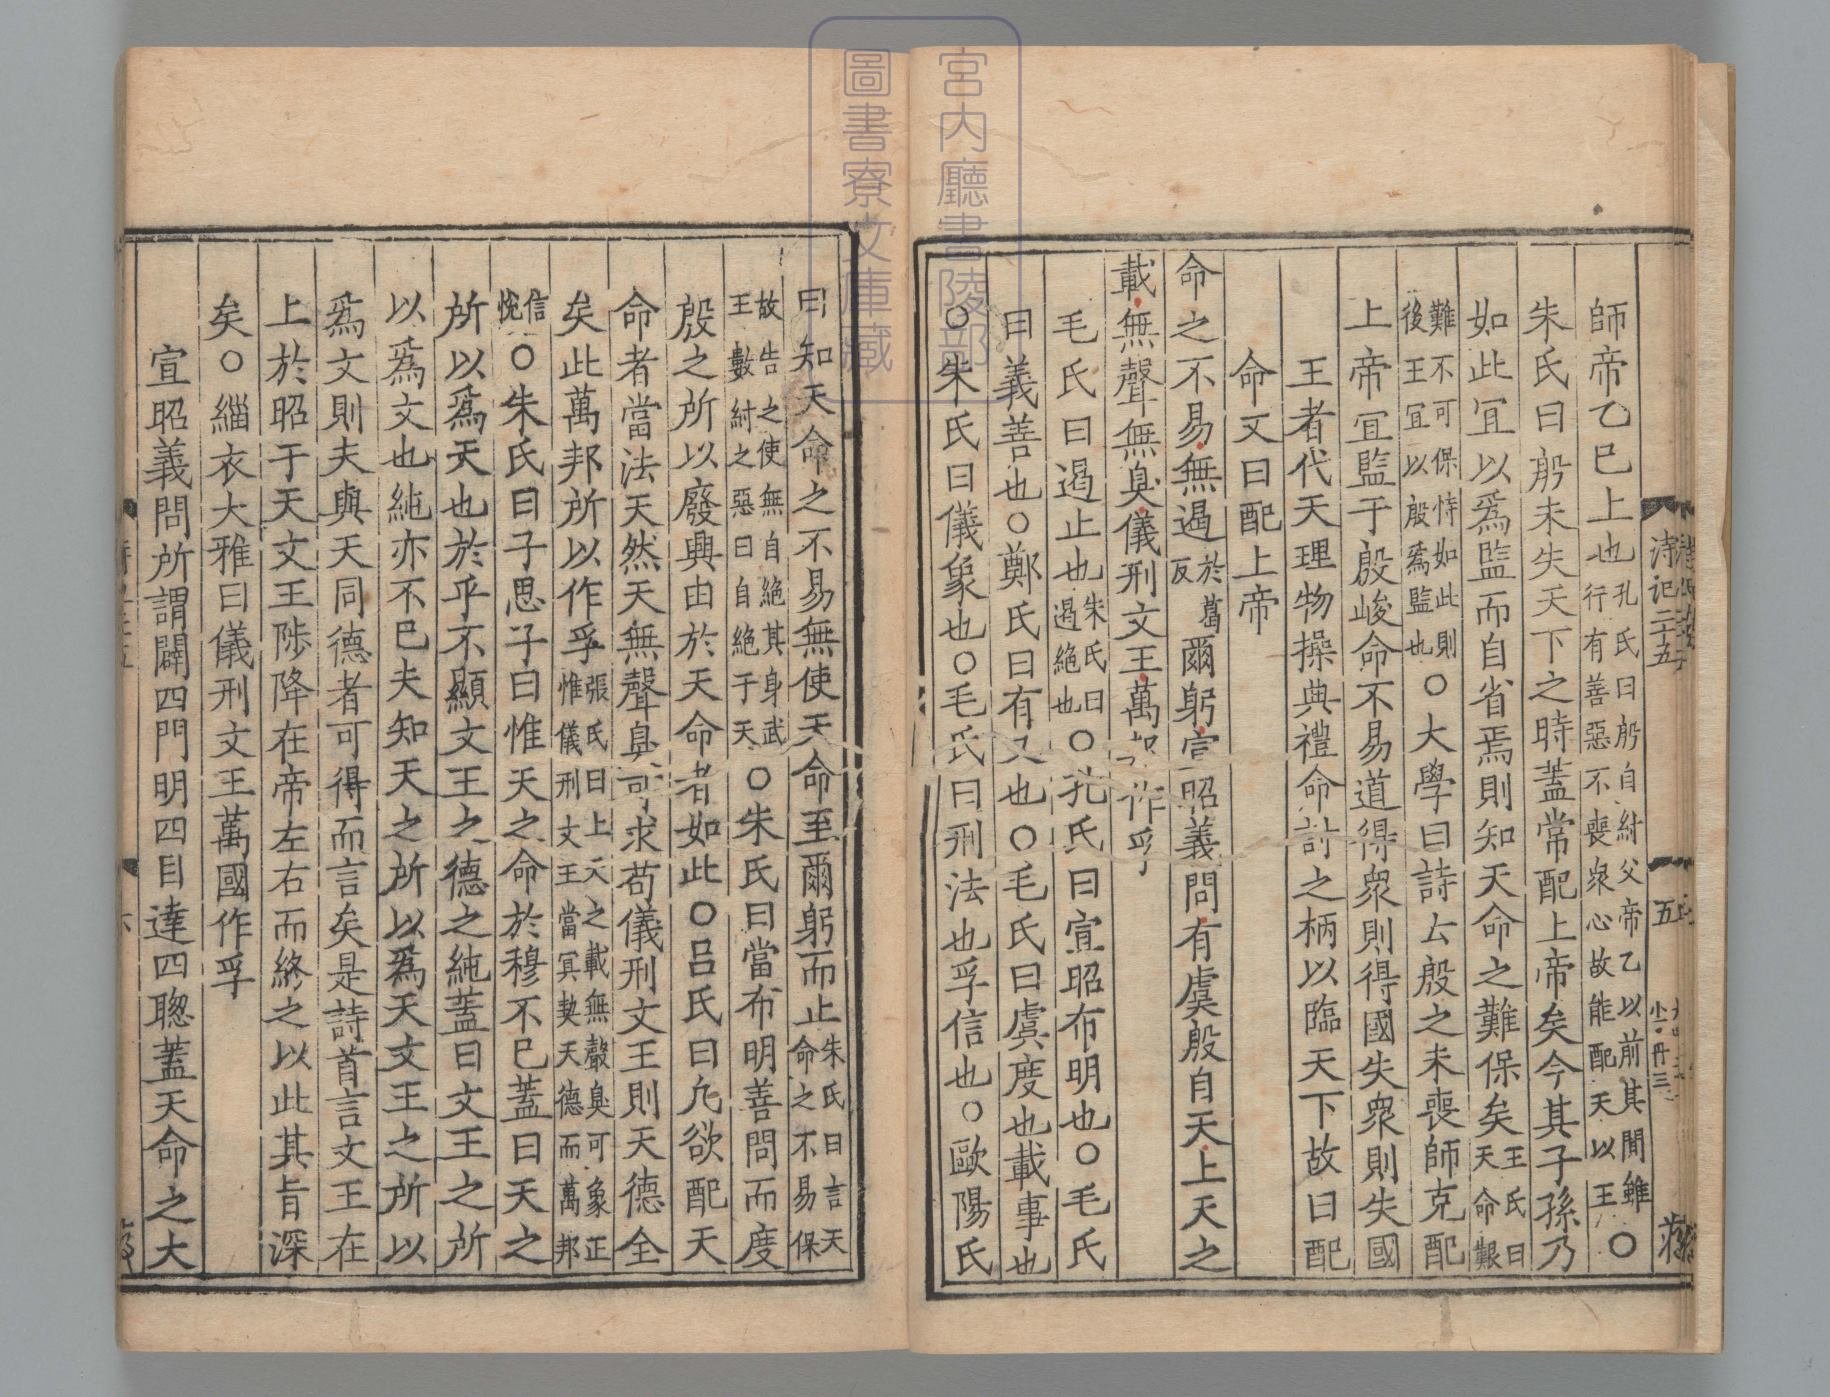 師帝乙巳上也孔氏曰殷自紂父帝乙以前其間雖行有善惡不喪衆心故能配天以王○
朱氏曰殷未失天下之時蓋常配上帝矣今其子孫乃
如此宜以爲監而自省焉則知天命之難保矣王氏曰天命艱
難不可保恃如此則後王宜以殷爲監也○大學曰詩云殷之未喪師克配
上帝宜監于殷峻命不易道得衆則得國失衆則失國
王者代天理物操典禮命討之柄以臨天下故曰配
命又曰配上帝
命之不易無遏於葛反爾躬宣昭義問有虞殷自天上天之
載無聲無臭儀刑文王萬邦作孚
毛氏曰遏止也朱氏曰遏絶也○孔氏曰宣昭布明也○毛氏
曰義善也○鄭氏曰有又也○毛氏曰虞度也載事也
○朱氏曰儀象也○毛氏曰刑法也孚信也○歐陽氏
曰知天命之不易無使天命至爾躬而止朱氏曰言天命之不易保
故告之使無自絶其身武王數紂之惡曰自絶于天○朱氏曰當布明善問而度
殷之所以廢興由於天命者如此○呂氏曰凢欲配天
命者當法天然天無聲臭可求苟儀刑文王則天德全
矣此萬邦所以作孚張氏曰上天之載無聲臭可象正惟儀刑文王當冥契天德而萬邦
信悅○朱氏曰子思子曰惟天之命於穆不已蓋曰天之
所以爲天也於乎不顯文王之德之純蓋曰文王之所
以爲文也純亦不已夫知天之所以爲天文王之所以
爲文則夫與天同德者可得而言矣是詩首言文王在
上於昭于天文王陟降在帝左右而終之以此其旨深
矣○緇衣大雅曰儀刑文王萬國作孚
宣昭義問所謂闢四門明四目達四聰蓋天命之大
詩記二十五
五
宮内廳書陵部
圖書寮文庫藏